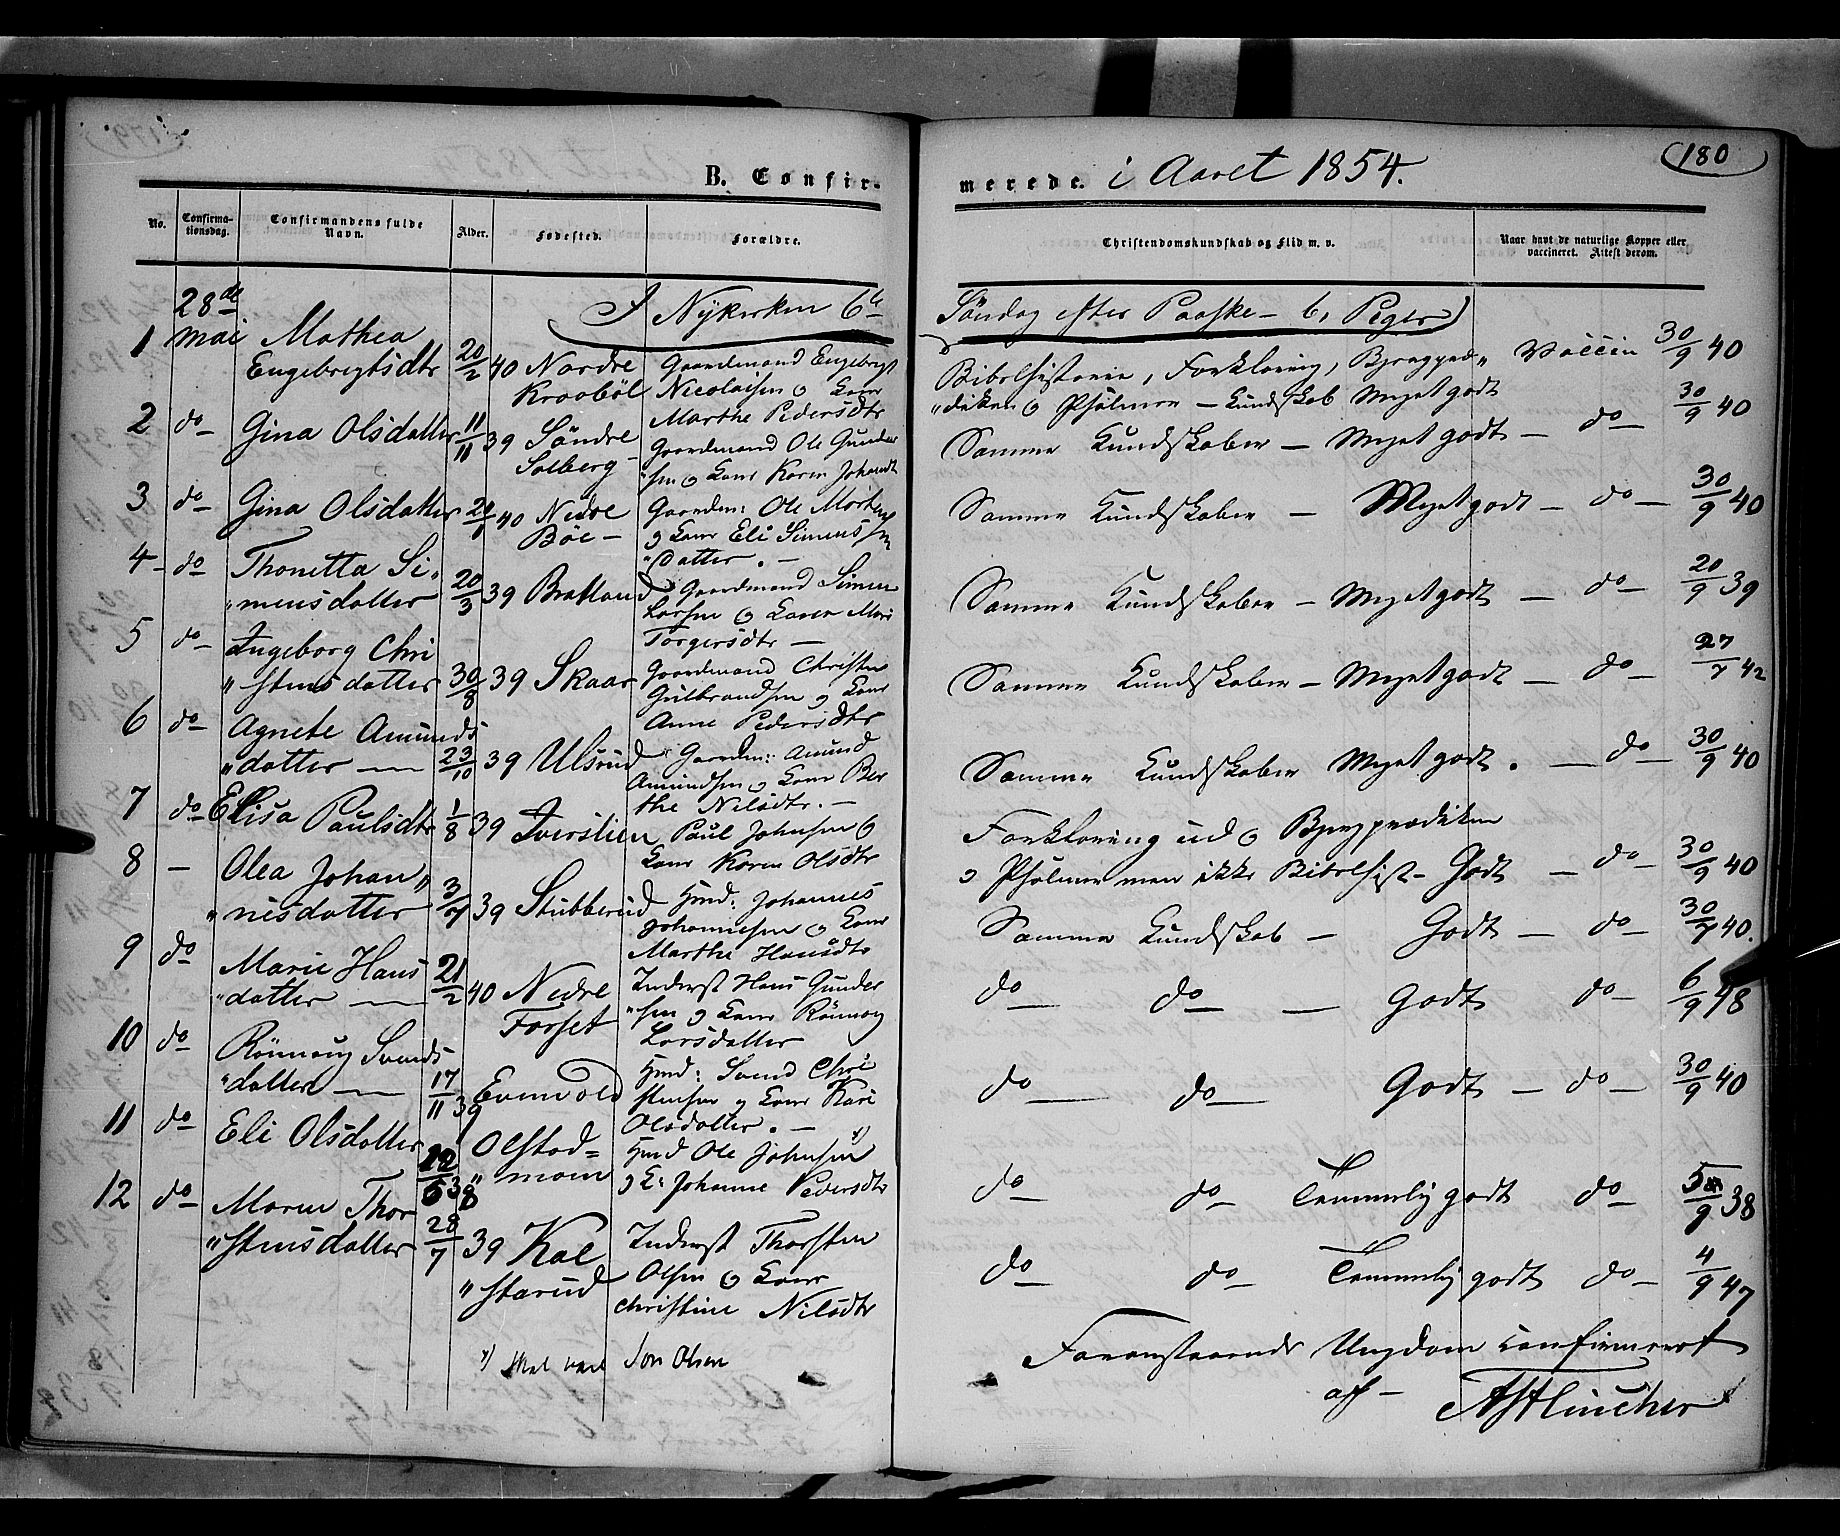 B. Confir-
merede. i Aaret 1854.
180
No.
Confirma-
tionsdag.
Confirmandens fulde
Navn.
Alder.
Fødested.
Forældre.
Christendomskundskab og Flid m. v.
Naar havt de naturlige Kopper eller
vaccineret. Attest derom.
28de
mai
I Nykirken 6te
Søndag efter Paaske - b, Piger
1 Mathea
Engebregtsdtr 20/2 40 Nordre
Kraabøl
Gaardmand Engebregt
Nicolaisen og Kone
Marthe Pedersdtr
Bibelhistorie, Forklaring, Bjergpræ"
"diken og Psalmer - Kundskab Meget godt
Vaccin 30/9 40
2 do Gina Olsdatter 11/11 39 Söndre
Solberg -
Gaardmand Ole Gunder
"sen og Kone Karen Johansdt
Samme Kundskaber - Meget godt - do - 30/9 40
3 do Gina Olsdatter 40 Nedre
Böe -
Gaardm: Ole Morten
sen
og Kone Eli Simens
"datter. -
Samme Kundskaber - Meget godt - do - 30/9 40
4 - do Thonetta Si-
"mensdatter 20/3 39 Bratland
Gaardmand Simen
Larsen og Kone Mari
Torgersdtr -
Samme Kundskaber - Meget godt - do - 20/9 39
5 do Ingeborg Chri
"stensdatter 30/8 39 Skaar
Gaardmand Christen
Gulbrandsen og Kone
Anne Pedersdtr
Samme Kundskaber - Meget godt - do - 27/7 42
6 do Agnete Amunds
"datter - 23/10 39 Ulsrud
Gaardm: Amund
Amundsen og Kone Ber
the Nilsdtr. -
Samme Kundskaber Meget godt. - do - 30/9 40
7 do Elisa Paulsdtr 1/8 39 Iverslien
Paul Johnsen og
Kone Karen Olsdtr
Forklaring ud og Bjergprædiken
og Psalmer men ikke Bibelhist - Godt - do - 30/9 40
8 - Olea Johan"
"nisdatter 3/7 39 Stubberud
Hmd: Johannes
Johannesen og Kone
Marthe Hansdtr
Samme Kundskab - Godt - do - 30/7 40.
9 do Marie Hans
"datter - 21/2 40 Nedre
Forset
Inderst Hans Gunder
"sen og Kone Rönnoug
Larsdatter
do - do - Godt do - 6/9 48
10 do Rönnoug Svends
"datter - 17/11 39 Evenvold
Hmd: Svend Chri
stensen og Kone Kari
Olsdatter. -
do - do - Godt - do - 30/9 40
11 do Eli Olsdatter 12/5 38 Olstad=
" moen
Hmd Ole Johnsen x)
og K: Johanne Pedersdtr
do - do - Temmelig godt do - 5/9 38
12 do Maren Thor
"stensdatter 28/7 39 Kol
"starud
Inderst Thorsten
Olsen og Kone
Christine Nilsdtr
do - do - Temmelig godt do - 4/9 47
x) skal være Jon Olsen
Foranstaaende Ungdom confirmeret
af -